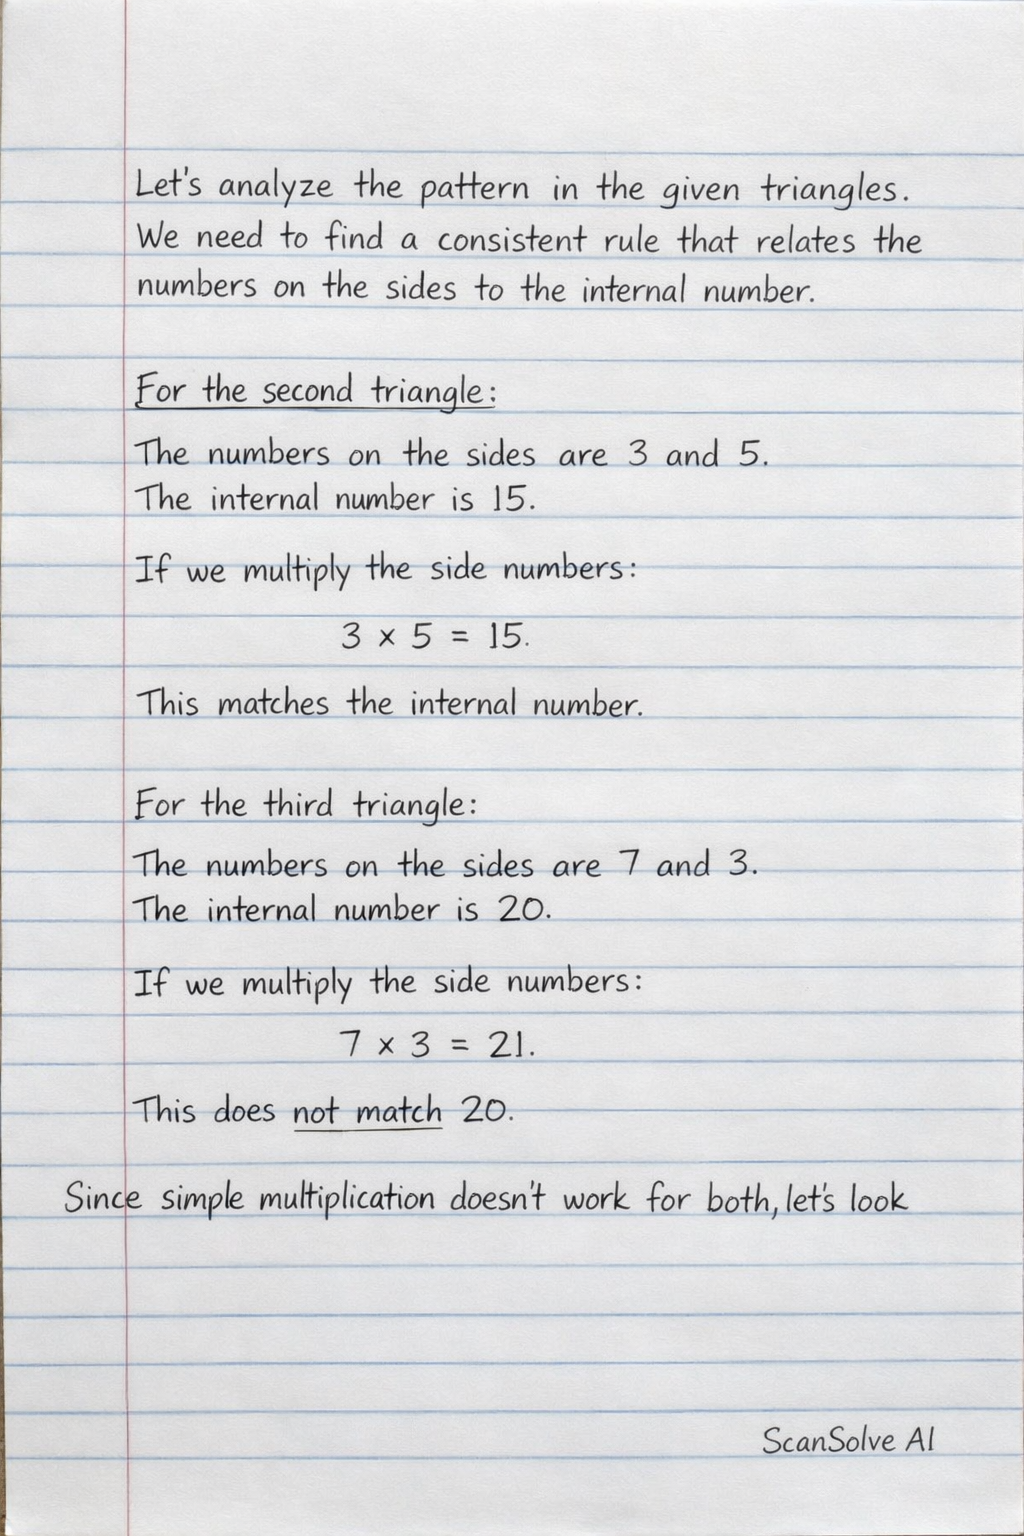 Let's analyze the pattern in the given triangles.
We need to find a consistent rule that relates the
numbers on the sides to the internal number.
For the second triangle:
The numbers on the sides are 3 and 5.
The internal number is 15.
If we multiply the side numbers:
3 × 5 = 15.
This matches the internal number.
For the third triangle:
The numbers on the sides are 7 and 3.
The internal number is 20.
If we multiply the side numbers:
7 × 3 = 21.
This does not match 20.
Since simple multiplication doesn't work for both, let's look
ScanSolve AI